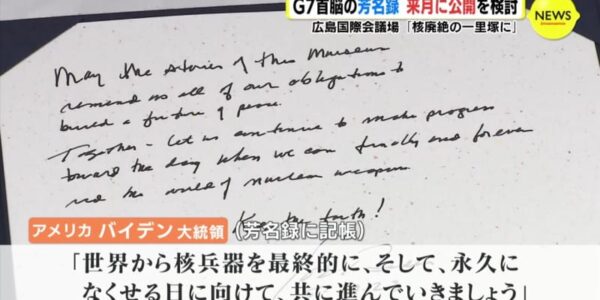 G7首脳の芳名録 来月に公開を検討
NEWS
広島国際会議場 「核廃絶の一里塚に」
May the stories of this Museum
remind us all of our obligations to
build a future of peace.
Together - let us continue to make progress
toward the day when we can finally and forever
rid the world of nuclear weapons.
Keep the faith!
アメリカ バイデン 大統領 (芳名録に記帳)
「世界から核兵器を最終的に、そして、永久に
なくせる日に向けて、共に進んでいきましょう」